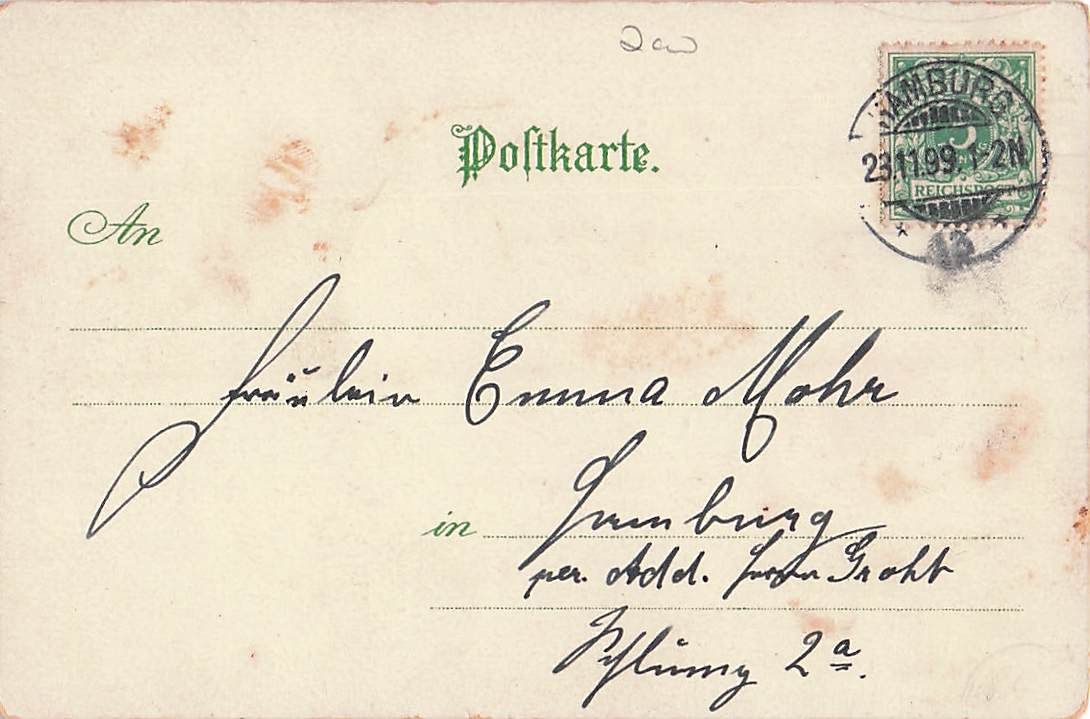 Postkarte.
HAMBURG
5
23.11.99. 1-2N
REICHSPOST
An
Fräulein Emma Mohr
in Hamburg
per. Add. Herrn Groht
2ª.